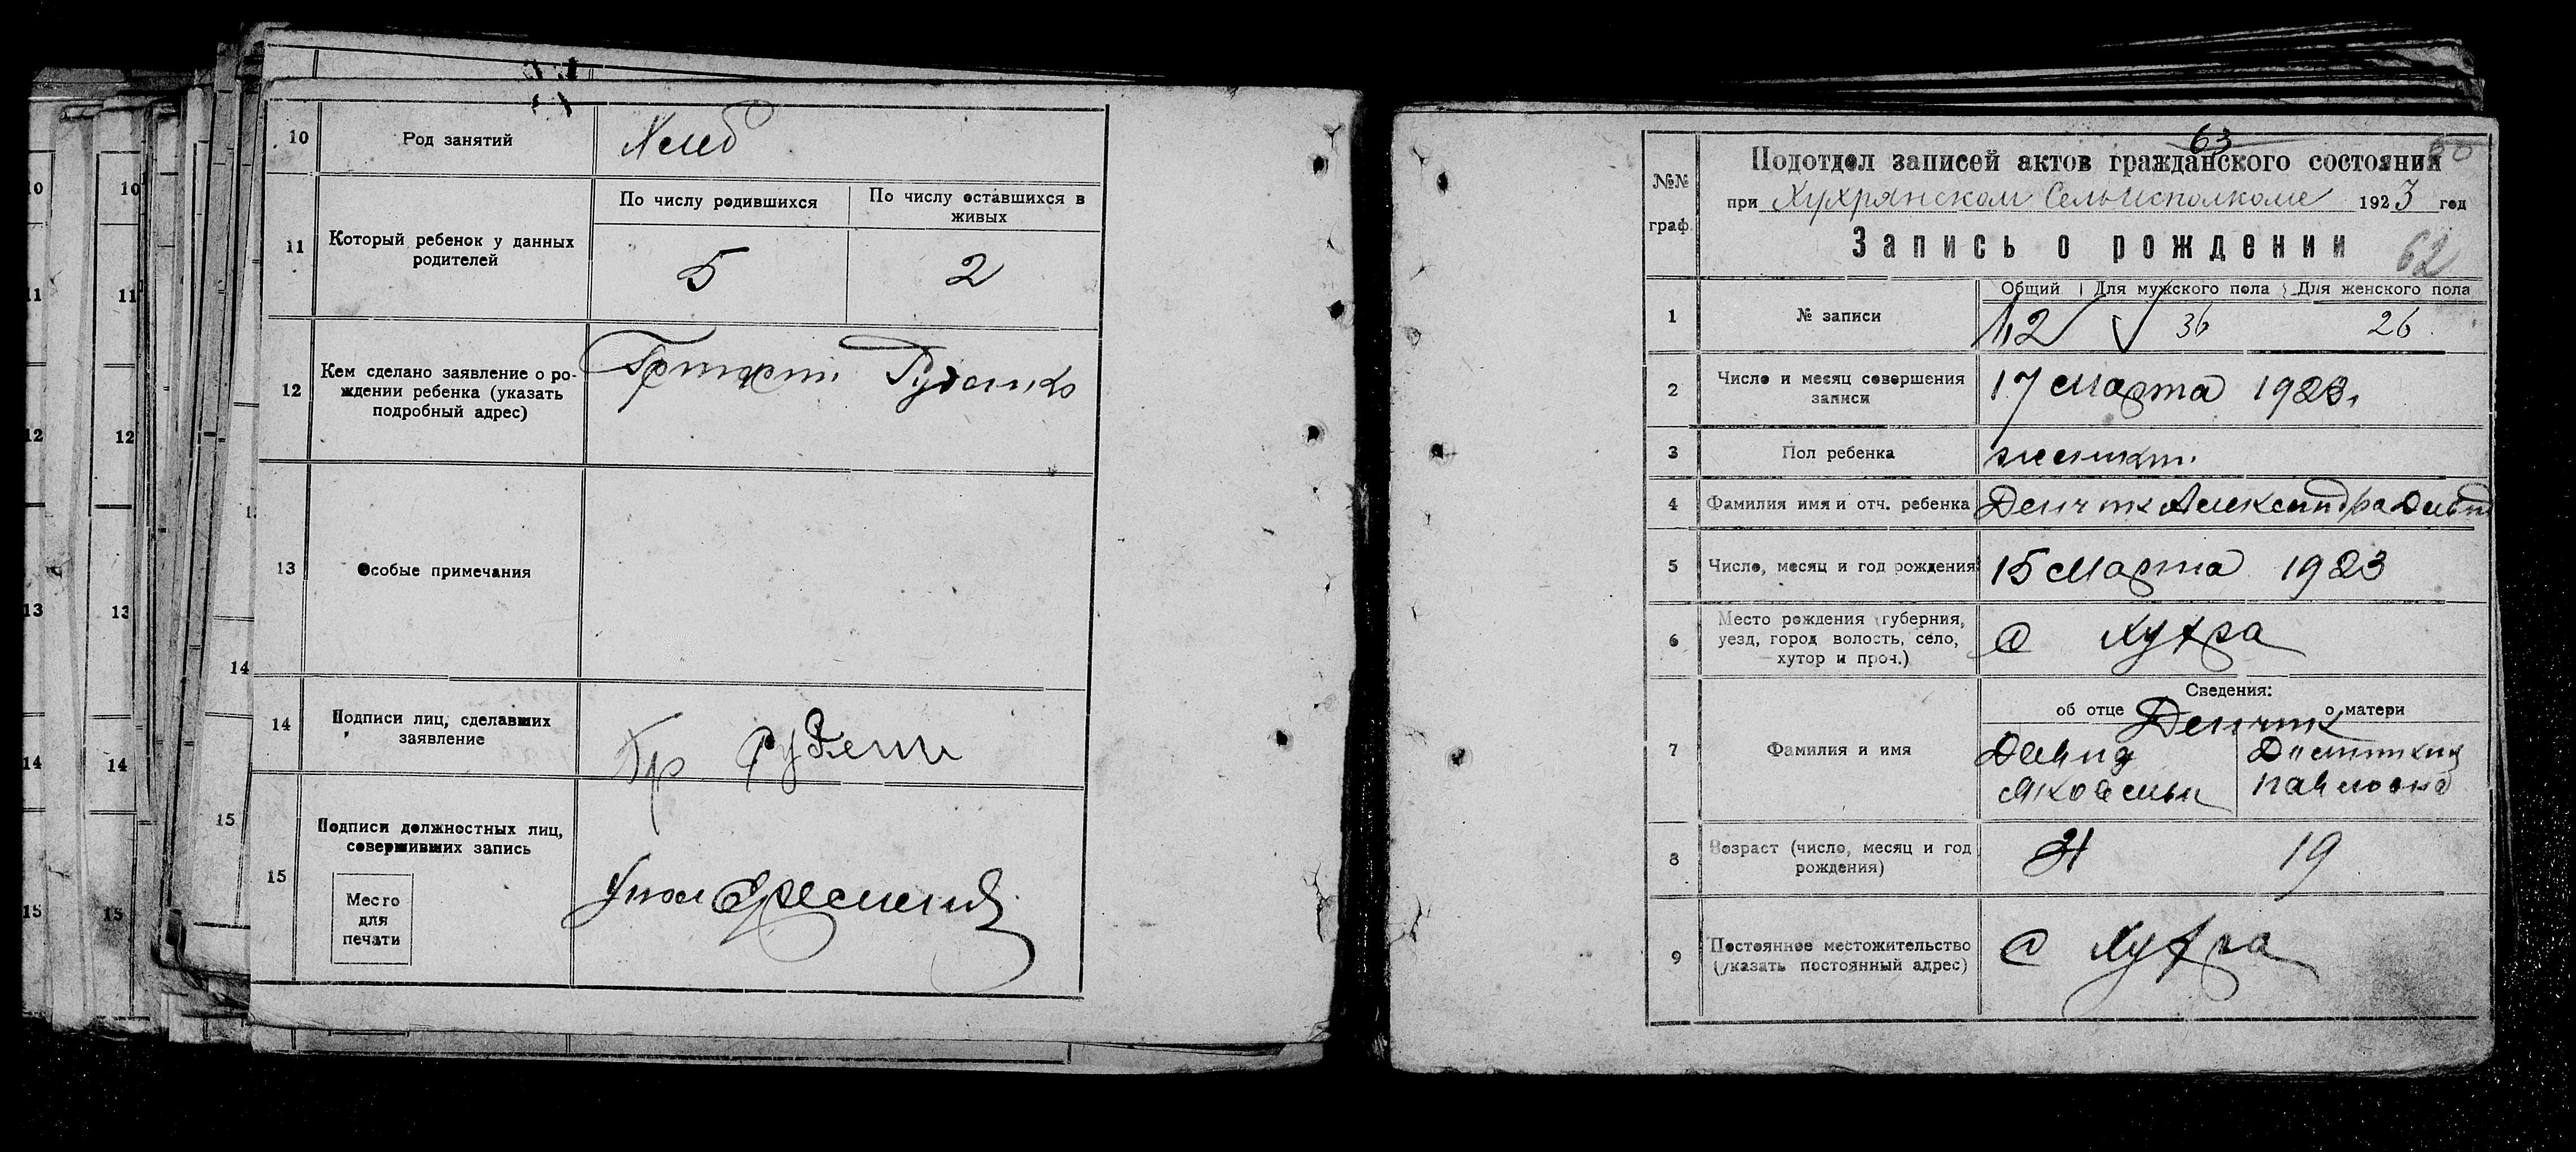 10
Род занятий
Хлеб
11
Который ребенок у данных
родителей
По числу родившихся
По числу оставшихся в
живых
5
2
12
Кем сделано заявление о ро-
ждении ребенка (указать
подробный адрес)
Руденко
13
Особые примечания
14
Подписи лиц, сделавших
заявление
Гр Руденко
15
Подписи должностных лиц,
совершивших запись
Место
для
печати
63
№№
граф.
Подотдел записей актов гражданского состояния
при Хухрянском Сельисполкоме 1923 год
Запись о рождении
62
1
№ записи
Общий
Для мужского пола
Для женского пола
36
26
2
Число и месяц совершения
записи
17 Марта 1923.
3
Пол ребенка
женск.
4
Фамилия имя и отч. ребенка
Александра Давид
5
Число, месяц и год рождения
15 Марта 1923
6
Место рождения (губерния,
уезд, город волость, село,
хутор и проч.)
с Хухра
7
Фамилия и имя
Сведения:
об отце
о матери
Давид
Яковлевич
Павловна
8
Возраст (число, месяц и год
рождения)
19
9
Постоянное местожительство
(указать постоянный адрес)
с Хухра
10
11
12
13
14
15
10
11
12
13
14
15
14
15